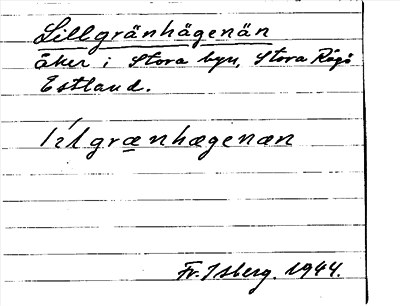 Lillgränhägenän
åker i Stora byn, Stora Rågö
Estland.
lílgrænhægenæn
Fr. Isberg. 1944.